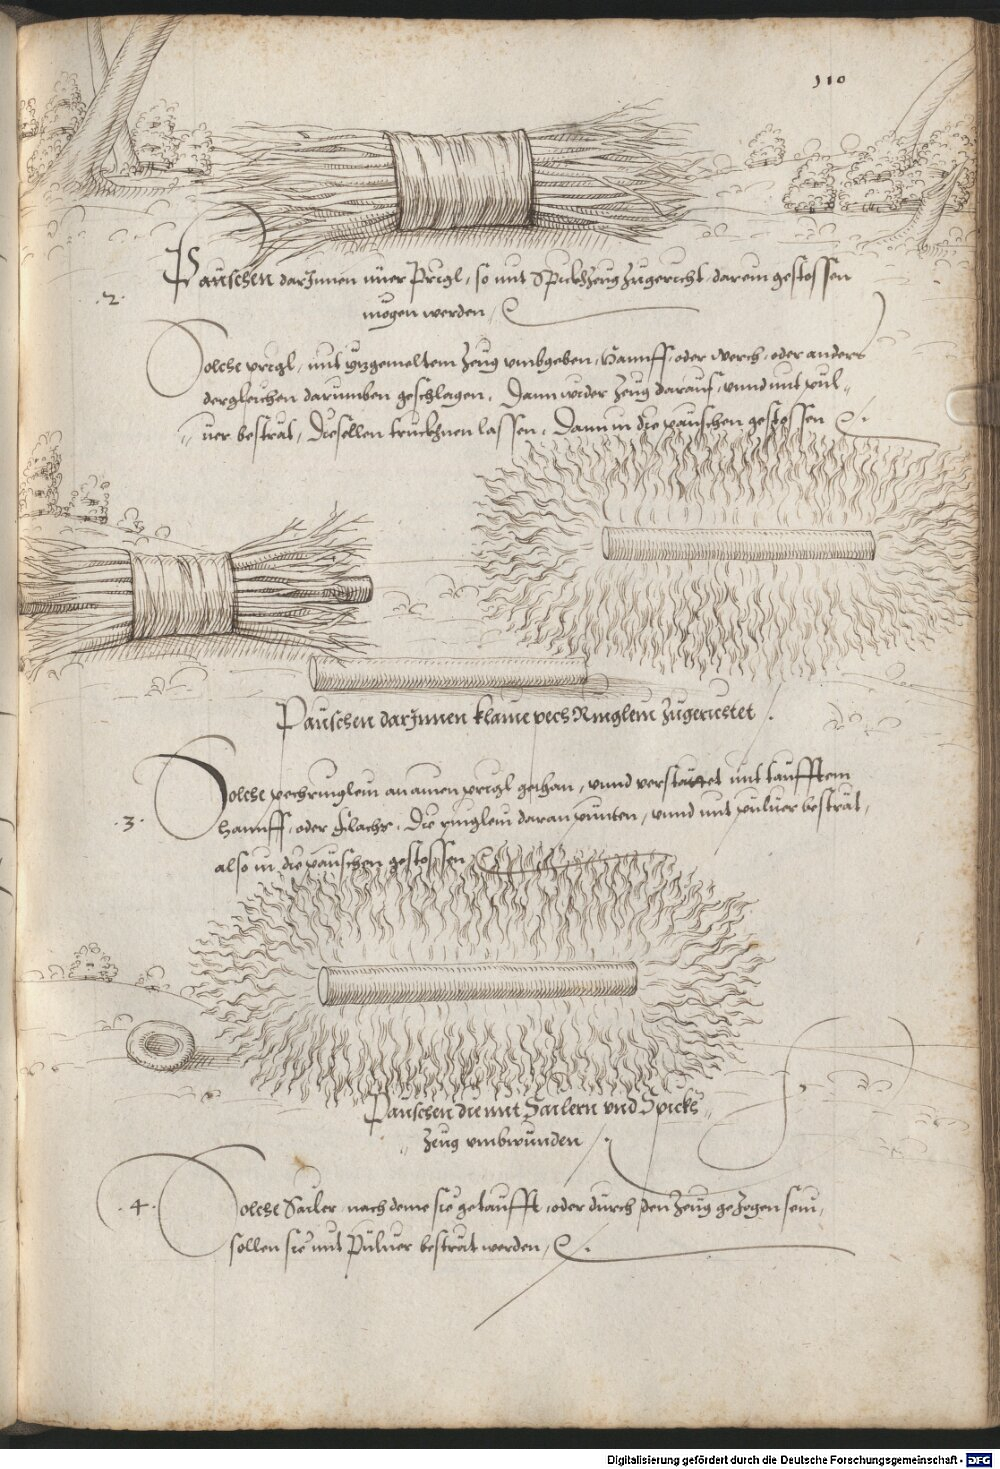 110
Päuschen darJnnen nüer Prügl, so mit Spickhzeug Zugericht, darein gestossen
mögen werden,
.2.
Solche prügl, mit yzgemeltem Zeug vmbgeben, Hannff, oder werch, oder anders
dergleichen darumben geschlagen. Dann wider Zeug darauf, vnnd mit pul„
„uer besträt, Dieselben truckhnen lassen. Dann in die päuschen gestossen
Päuschen darJnnen klaine pech Ringlein Zugerichtet.
.3.
Solche pechringlein an ainen prügl gethan, vnnd verstattet mit taufftem
hannff, oder flachs. Die ringlein daran punten, vnnd mit puluer besträt,
also in die päuschen gestossen
Päuschen die mit Sailern vnd Spickh„
„Zeug vmbwunden
.4.
Solche Sailer, nach deme sie getaufft, oder durch den Zeug geZogen sein,
sollen sie mit Püluer besträt werden,
Digitalisierung gefördert durch die Deutsche Forschungsgemeinschaft - DFG